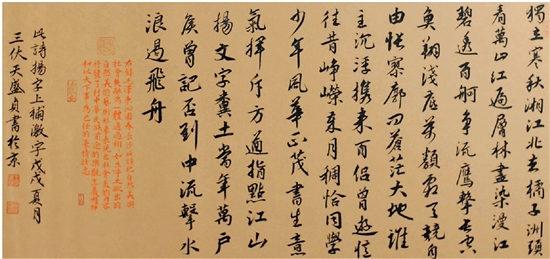 獨立寒秋湘江北去橘子洲頭
看萬山紅遍層林盡染漫江
碧透百舸爭流鷹擊長空
魚翔淺底萬類霜天競自
由悵寥廓問蒼茫大地誰
主沉浮携来百侣曾遊憶
往昔崢嶸歲月稠恰同學
少年風華正茂書生意
氣揮斥方遒指點江山
揚文字糞土當年萬户
侯曾記否到中流擊水
浪遏飛舟
此詩揚字上補激字戊戌夏月
三伏天盛貞書於京